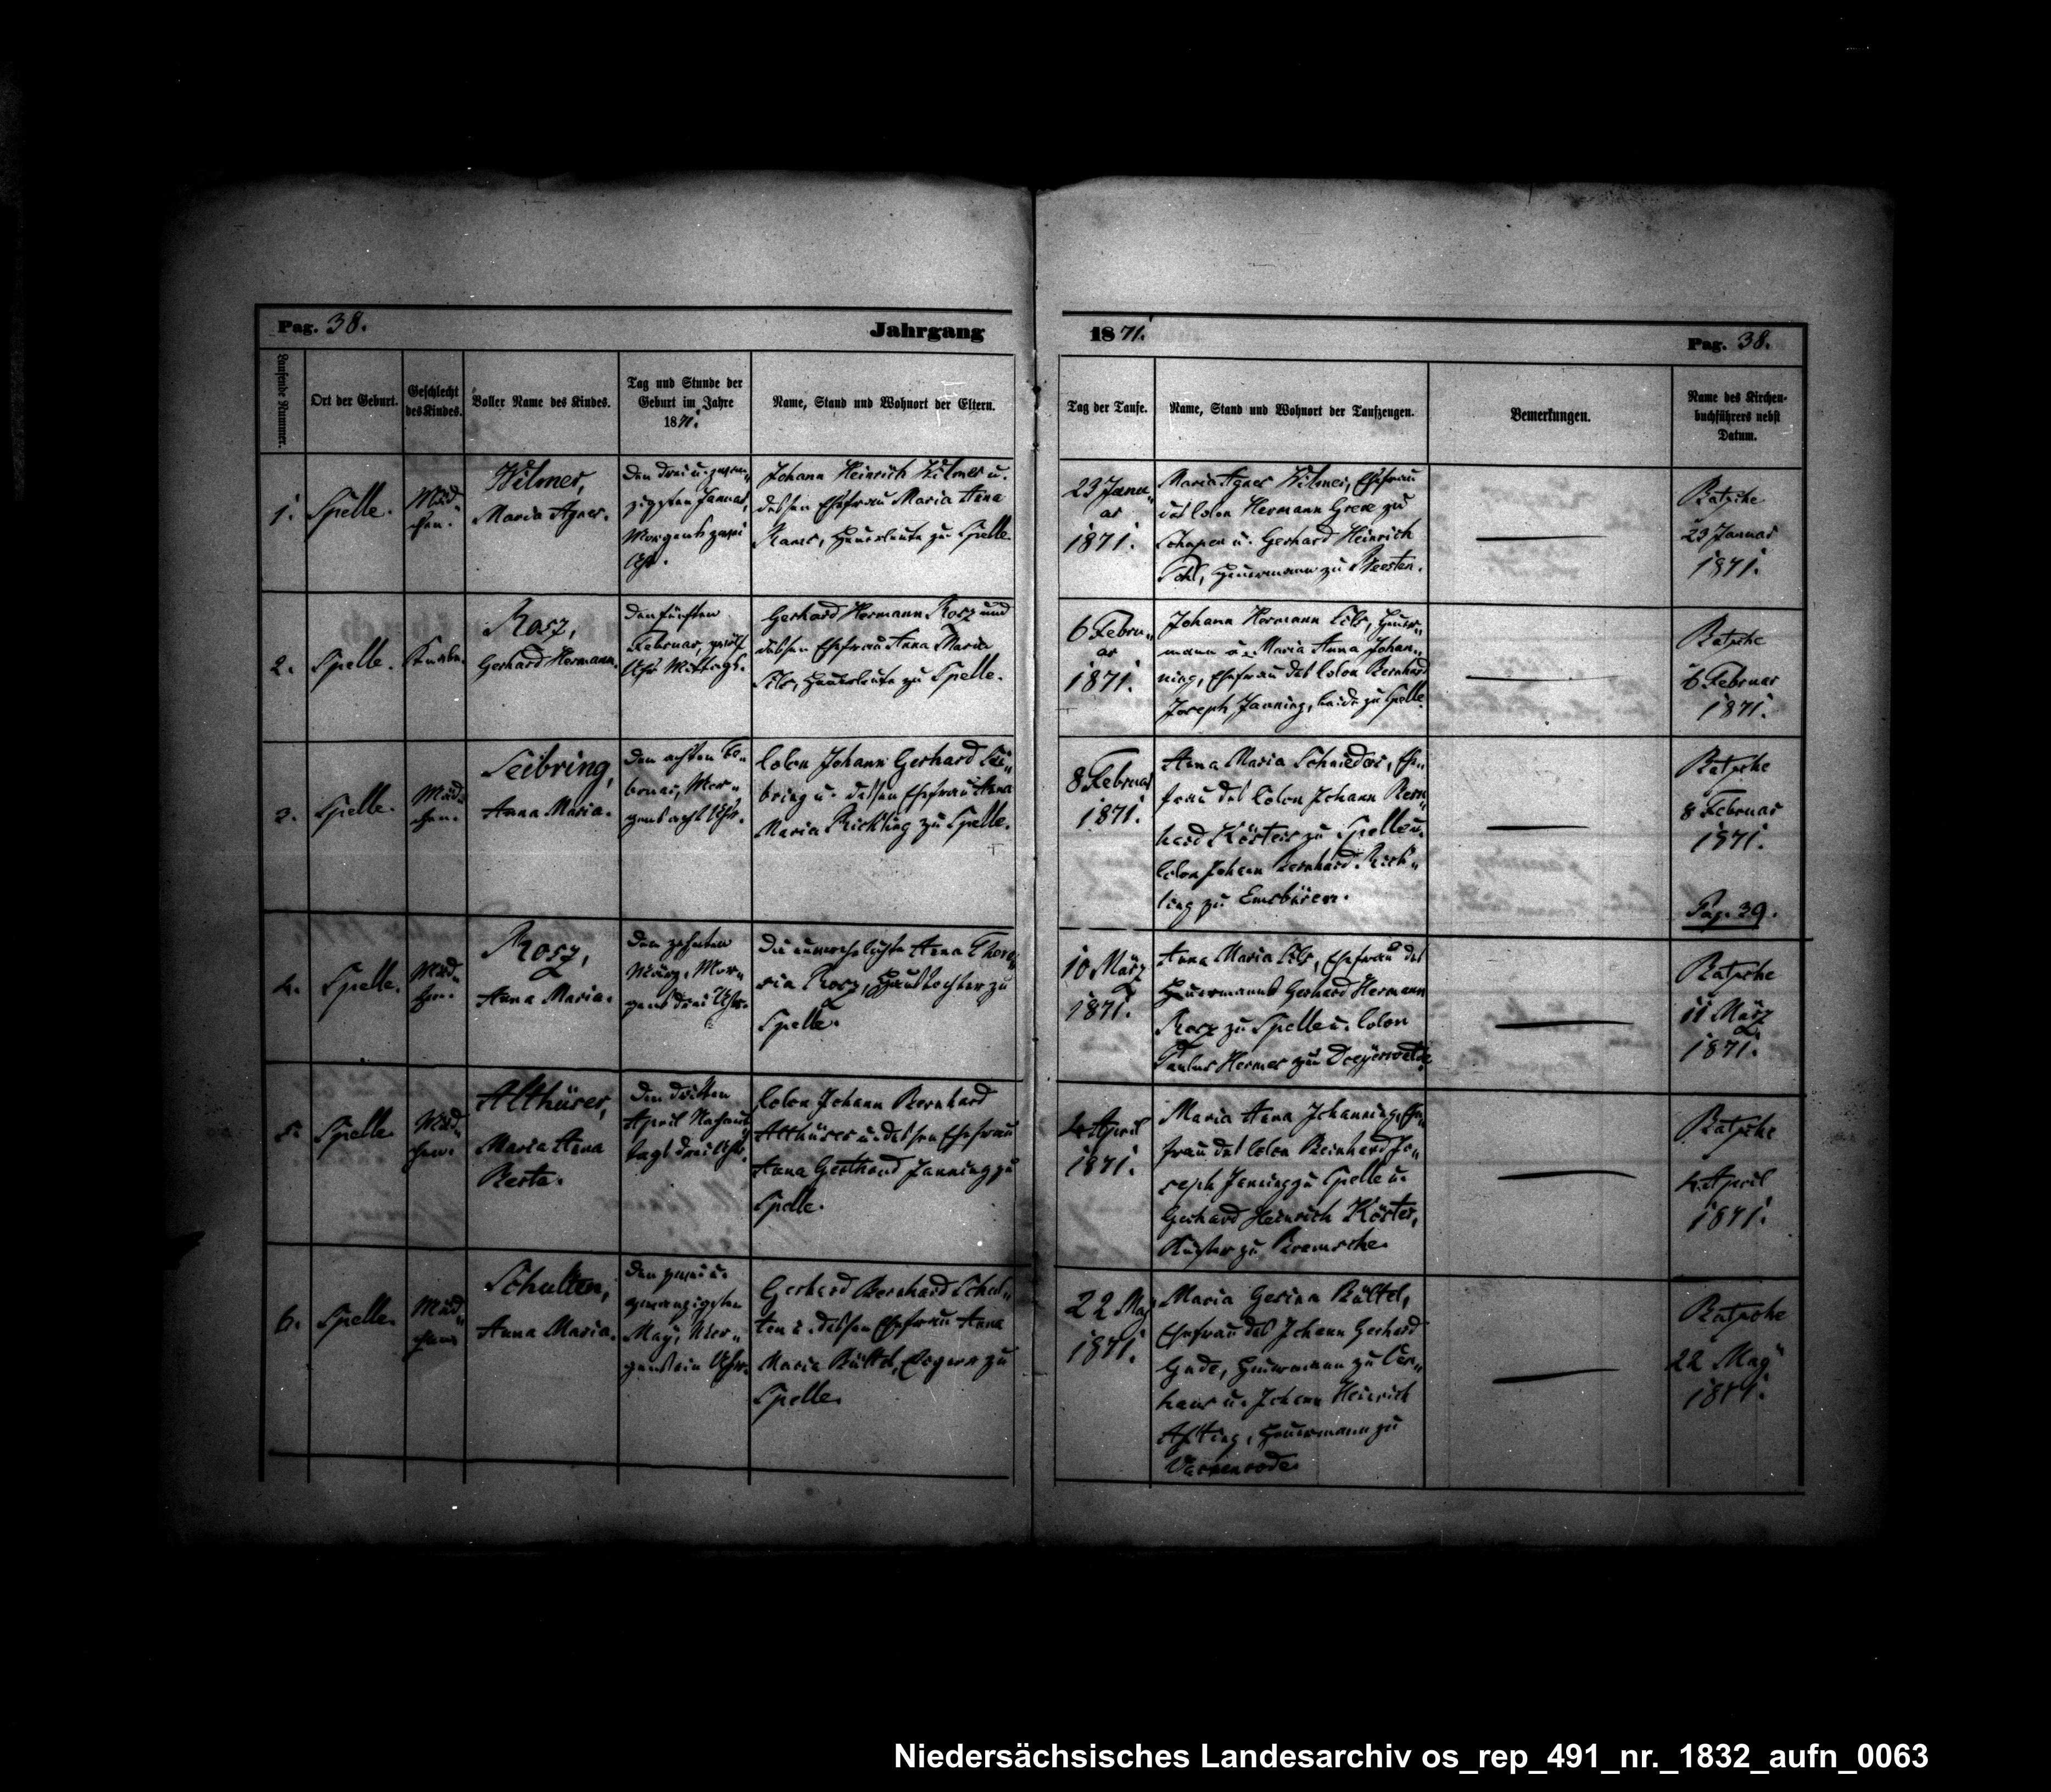 Pag. 38.
Jahrgang
1871.
Pag. 38.
Laufende Nummer.
Ort der Geburt.
Geschlecht
des Kindes.
Voller Name des Kindes.
Tag und Stunde der
Geburt im Jahre
1871.
Name, Stand und Wohnort der Eltern.
Tag der Taufe.
Name, Stand und Wohnort der Taufzeugen.
Bemerkungen.
Name des Kirchen-
buchführers nebst
Datum.
1.
Spelle.
Mäd-
chen.
Wilmer,
Maria Agnes.
Den drei u. zwan-
zigsten Januar,
Morgens zwei
Uhr.
Johann Heinrich Wilmer u.
dessen Ehefrau Maria Anna
Heuerleute zu Spelle
23 Janu-
ar
1871.
Maria Agnes Wilmer, Ehefrau
des Colon Hermann Greve zu
Schapen u. Gerhard Heinrich
Heuermann zu Beesten.
23 Januar
1871.
2.
Spelle.
Knabe.
Rosz,
Gerhard Hermann.
Den fünften
Februar, zwölf
Uhr Mittags.
Gerhard Hermann Rosz und
dessen Ehefrau Anna Maria
Heuerleute zu Spelle.
6 Febru-
ar
1871.
Johann Hermann Heuer-
mann u. Maria Anna Johan-
ning, Ehefrau des Colon Bernhard
Joseph Janning, beide zu Spelle.
6 Februar
1871.
3.
Spelle.
Mäd-
chen.
Seibring,
Anna Maria.
Den achten Fe-
bruar, Mor-
gens acht Uhr.
Colon Johann Gerhard Sei-
bring u. dessen Ehefrau Anna
Maria Rickling zu Spelle.
8 Februar
1871.
Anna Maria Schnieders, Ehe-
frau des Colon Johann Bern-
hard Kösters zu Spelle u.
Colon Johann Bernhard Rick-
ling zu Emsbüren.
8 Februar
1871.
Pag. 39.
4.
Spelle.
Mäd-
chen.
Rosz,
Anna Maria.
Den zehnten
März, Mor-
gens drei Uhr.
Die unverehelichte Anna There-
sia Rosz, Haustochter zu
Spelle.
10 März
1871.
Anna Maria Ehefrau des
Heuermanns Gerhard Hermann
Rosz zu Spelle u. Colon
Paulus Hermes zu Dreyerwalde
11 März
1871.
5.
Spelle.
Mäd-
chen.
Althüser,
Maria Anna
Den dritten
April Nachmit-
tags drei Uhr.
Colon Johann Bernhard
Althüser u. dessen Ehefrau
Anna Gerthrud Janning zu
Spelle.
4 April
1871.
Maria Anna Johanning, Ehe-
frau des Colon Bernhard Jo-
seph Janning zu Spelle u.
Gerhard Heinrich Köster,
Küster zu Bramsche.
4 April
1871.
6.
Spelle.
Mäd-
chen
Schulten,
Anna Maria.
Den zwei u.
zwanzigsten
May, Mor-
gens ein Uhr.
Gerhard Bernhard Schul-
ten u. dessen Ehefrau Anna
Maria Bültel, zu
Spelle.
22 May
1871.
Maria Gesina Bültel,
Ehefrau des Johann Gerhard
Heuermann zu Ven-
haus u. Johann Heinrich
Heuermann zu
Varenrode
22 May
1871.
Niedersächsisches Landesarchiv os_rep_491_nr._1832_aufn_0063